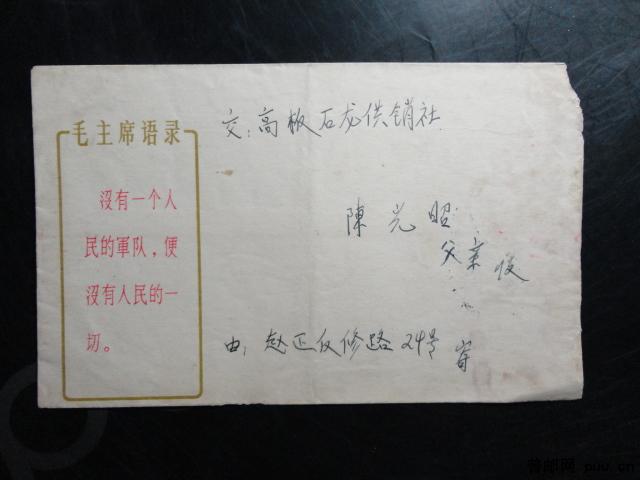 毛主席语录
沒有一个人
民的軍队，便
沒有人民的一
切。
交：高板石龙供销社
陳光昭
父亲 收
由：赵正反修路24号 寄
普邮网 puu.cn